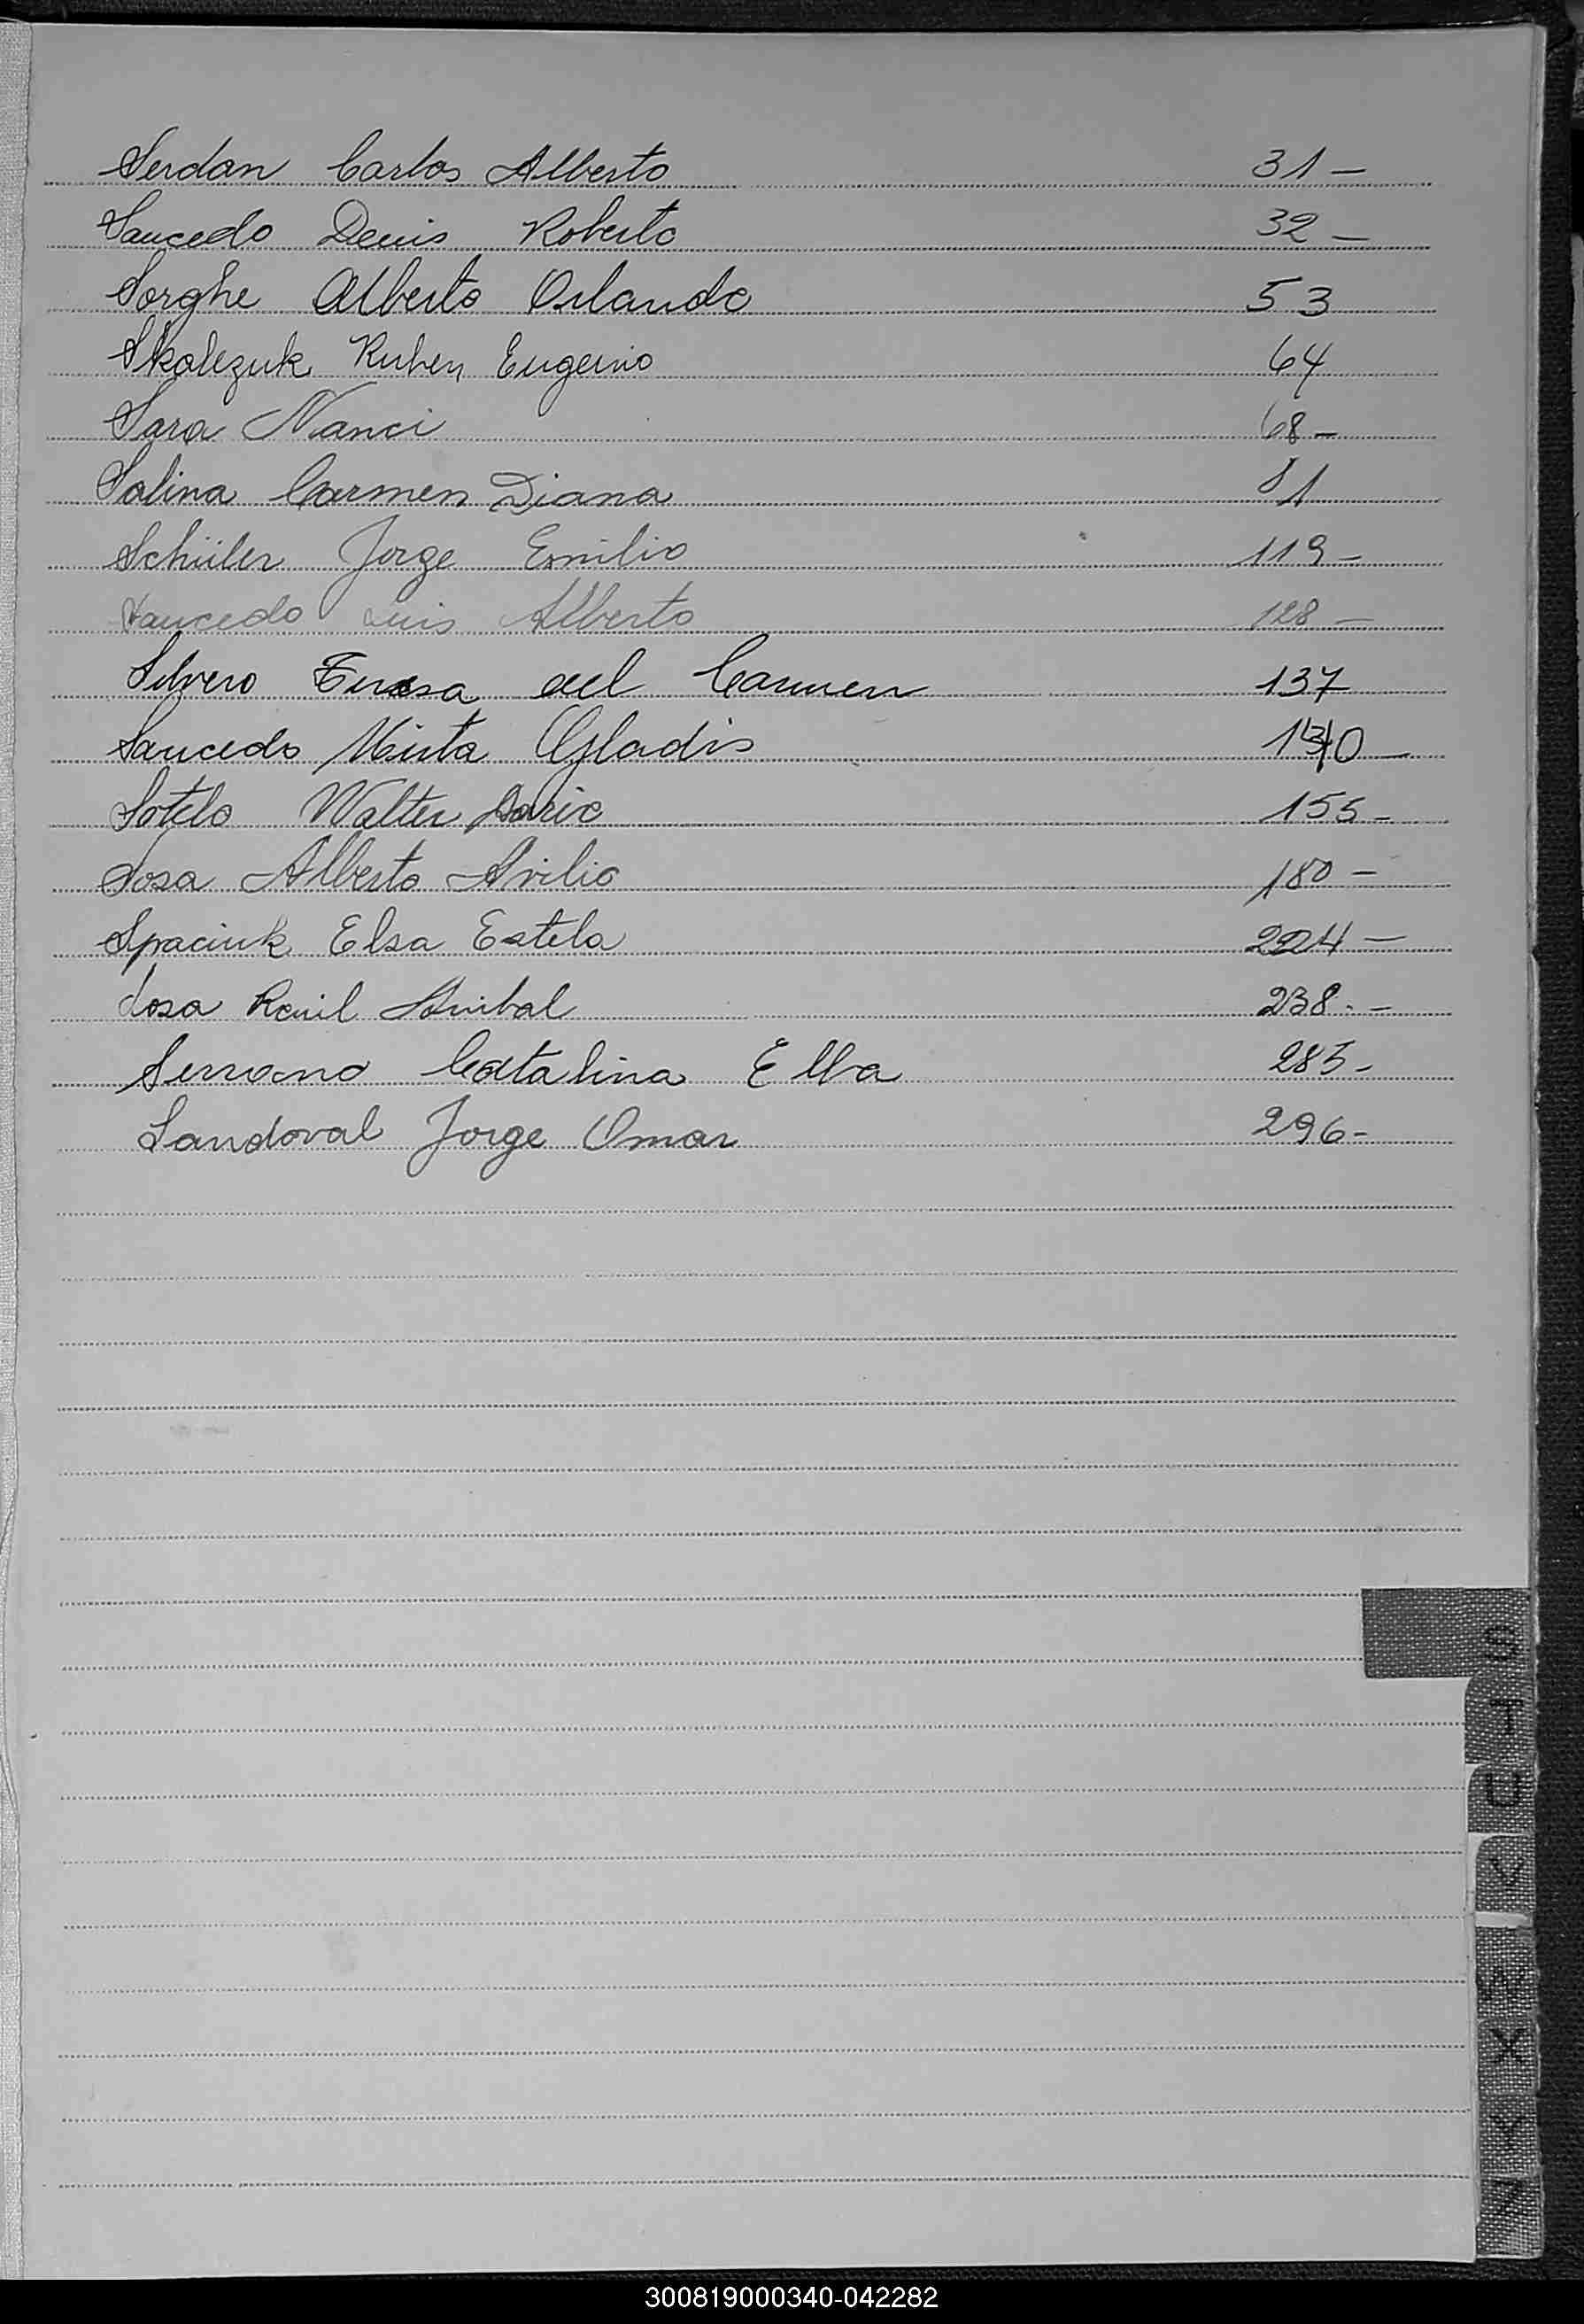 Serdan Carlos Alberto 31 -
Saucedo Denis Roberto 32 -
Sorghe Alberto Orlando 53
Skalezuk Ruben Eugenio 64
Sara Nanci 68 -
Salina Carmen Diana 81
Schüler Jorge Emilio 119 -
Saucedo Luis Alberto 128 -
Silvero Teresa del Carmen 137
Saucedo Mirta Gladis 140 -
Sotelo Walter Dario 155 -
Sosa Alberto Avilio 180 -
Spaciuk Elsa Estela 224 -
Sosa Raul Anibal 238 - -
Serrano Catalina Elba 285 -
Sandoval Jorge Omar 296 -
S
T
U
V
W
X
Y
Z
300819000340-042282